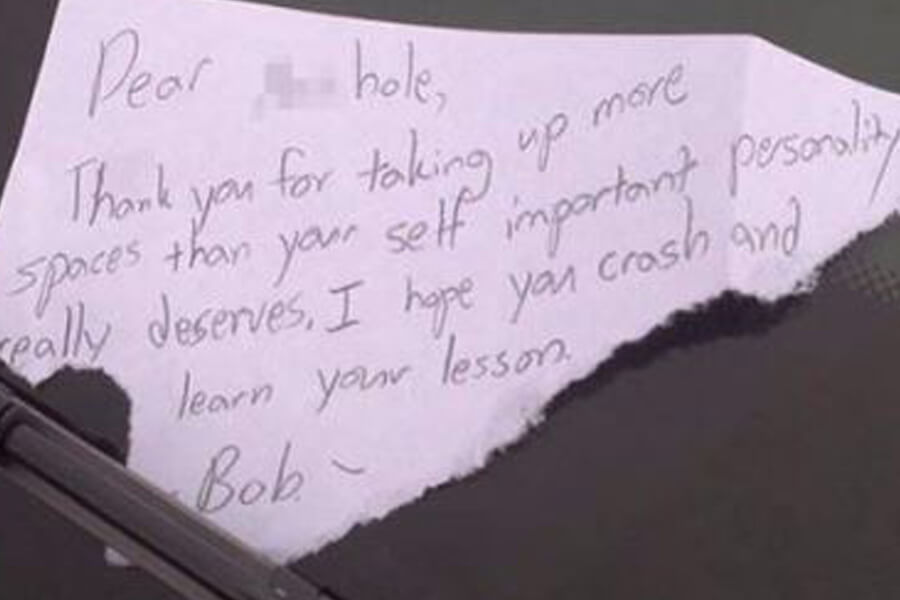 Dear hole,
Thank you for taking up more
spaces than your self important personality
really deserves. I hope you crash and
learn your lesson.
Bob ~